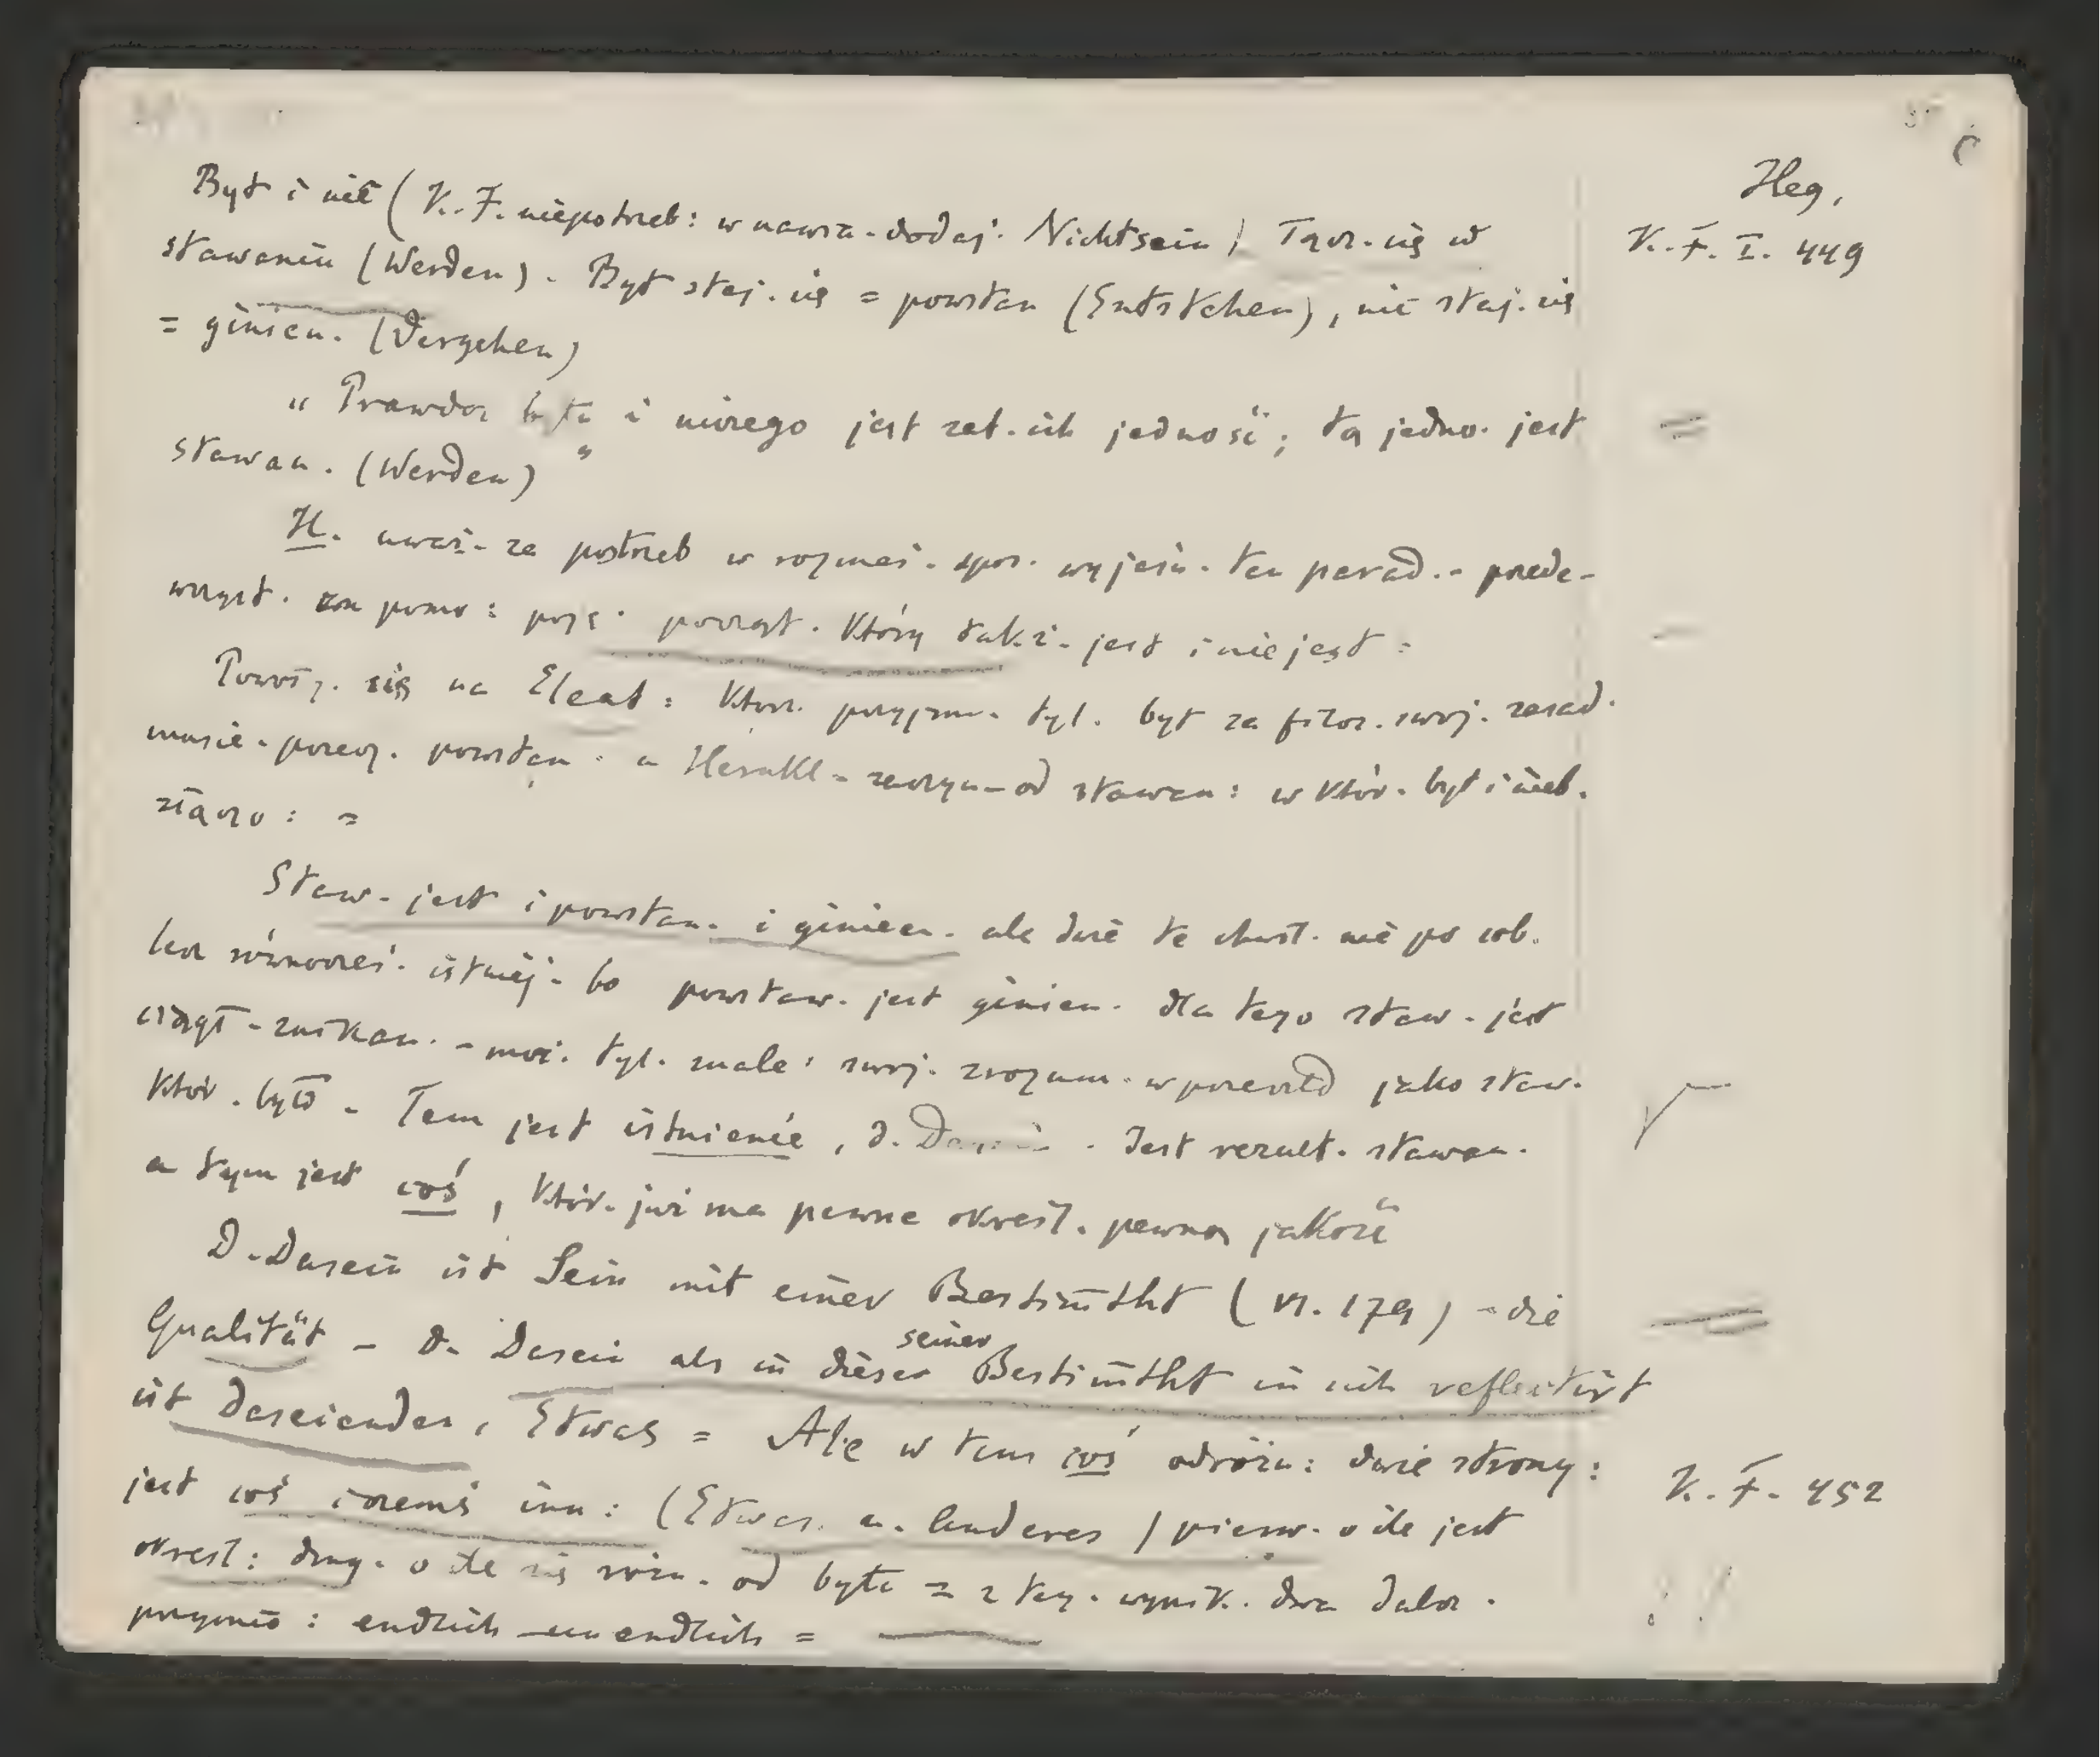 Heg.
Byt i nic (K. F. niepotrzeb: w nawia. dodaj. Nichtsein) Tącz. się w
K. F. I. 449
stawaniu (Werden). Byt staj. się = powstan (Entstehen), nic staj. się
= ginien. (Vergehen)
„Prawdą bytu i niczego jest zat. ich jedność; tą jedno. jest
stawan. (Werden)"
H. uważ. za potrzeb w rozmai. spos. wyjaśn. ten parad. - przede-
wszyst. za pomo: poję. począt. który takż. jest i nie jest:
Powoł. się na Eleat: którz. przyjm. tyl. byt za filoz. swoj. zasad.
musie. przecz. powstan. a Herakl. zaczyn. od stawan: w któr. byt i nieb.
złączo: =
Staw. jest i powstan. i ginien. ale dwie te chwil. nie po sob.
lecz równocześ. istniej. bo powstaw. jest ginien. dla tego staw. jest
ciągł. znikan. - moż. tyl. znale: swoj. zrozum. w przeszłd jako staw.
któr. było. Tem jest istnienie, d. Dasein. Jest rezult. stawan.
a tym jest coś, któr. już ma pewne określ. pewną jakość
D. Dasein ist Sein mit einer Bestim̄tht (VI. 179) - die
Qualität - D. Dasein als in dieser seiner Bestim̄tht in sich reflectirt
ist Daseiendes, Etwas = Ale w tem coś odróżn: dwie strony:
jest coś i czemś inn: (Etwas u. Anderes) pierw. o ile jest
K. F. 452
określ: drug. o ile się różn. od bytu = z teg. wynik. dwa dalsz.
przymio: endlich - unendlich =